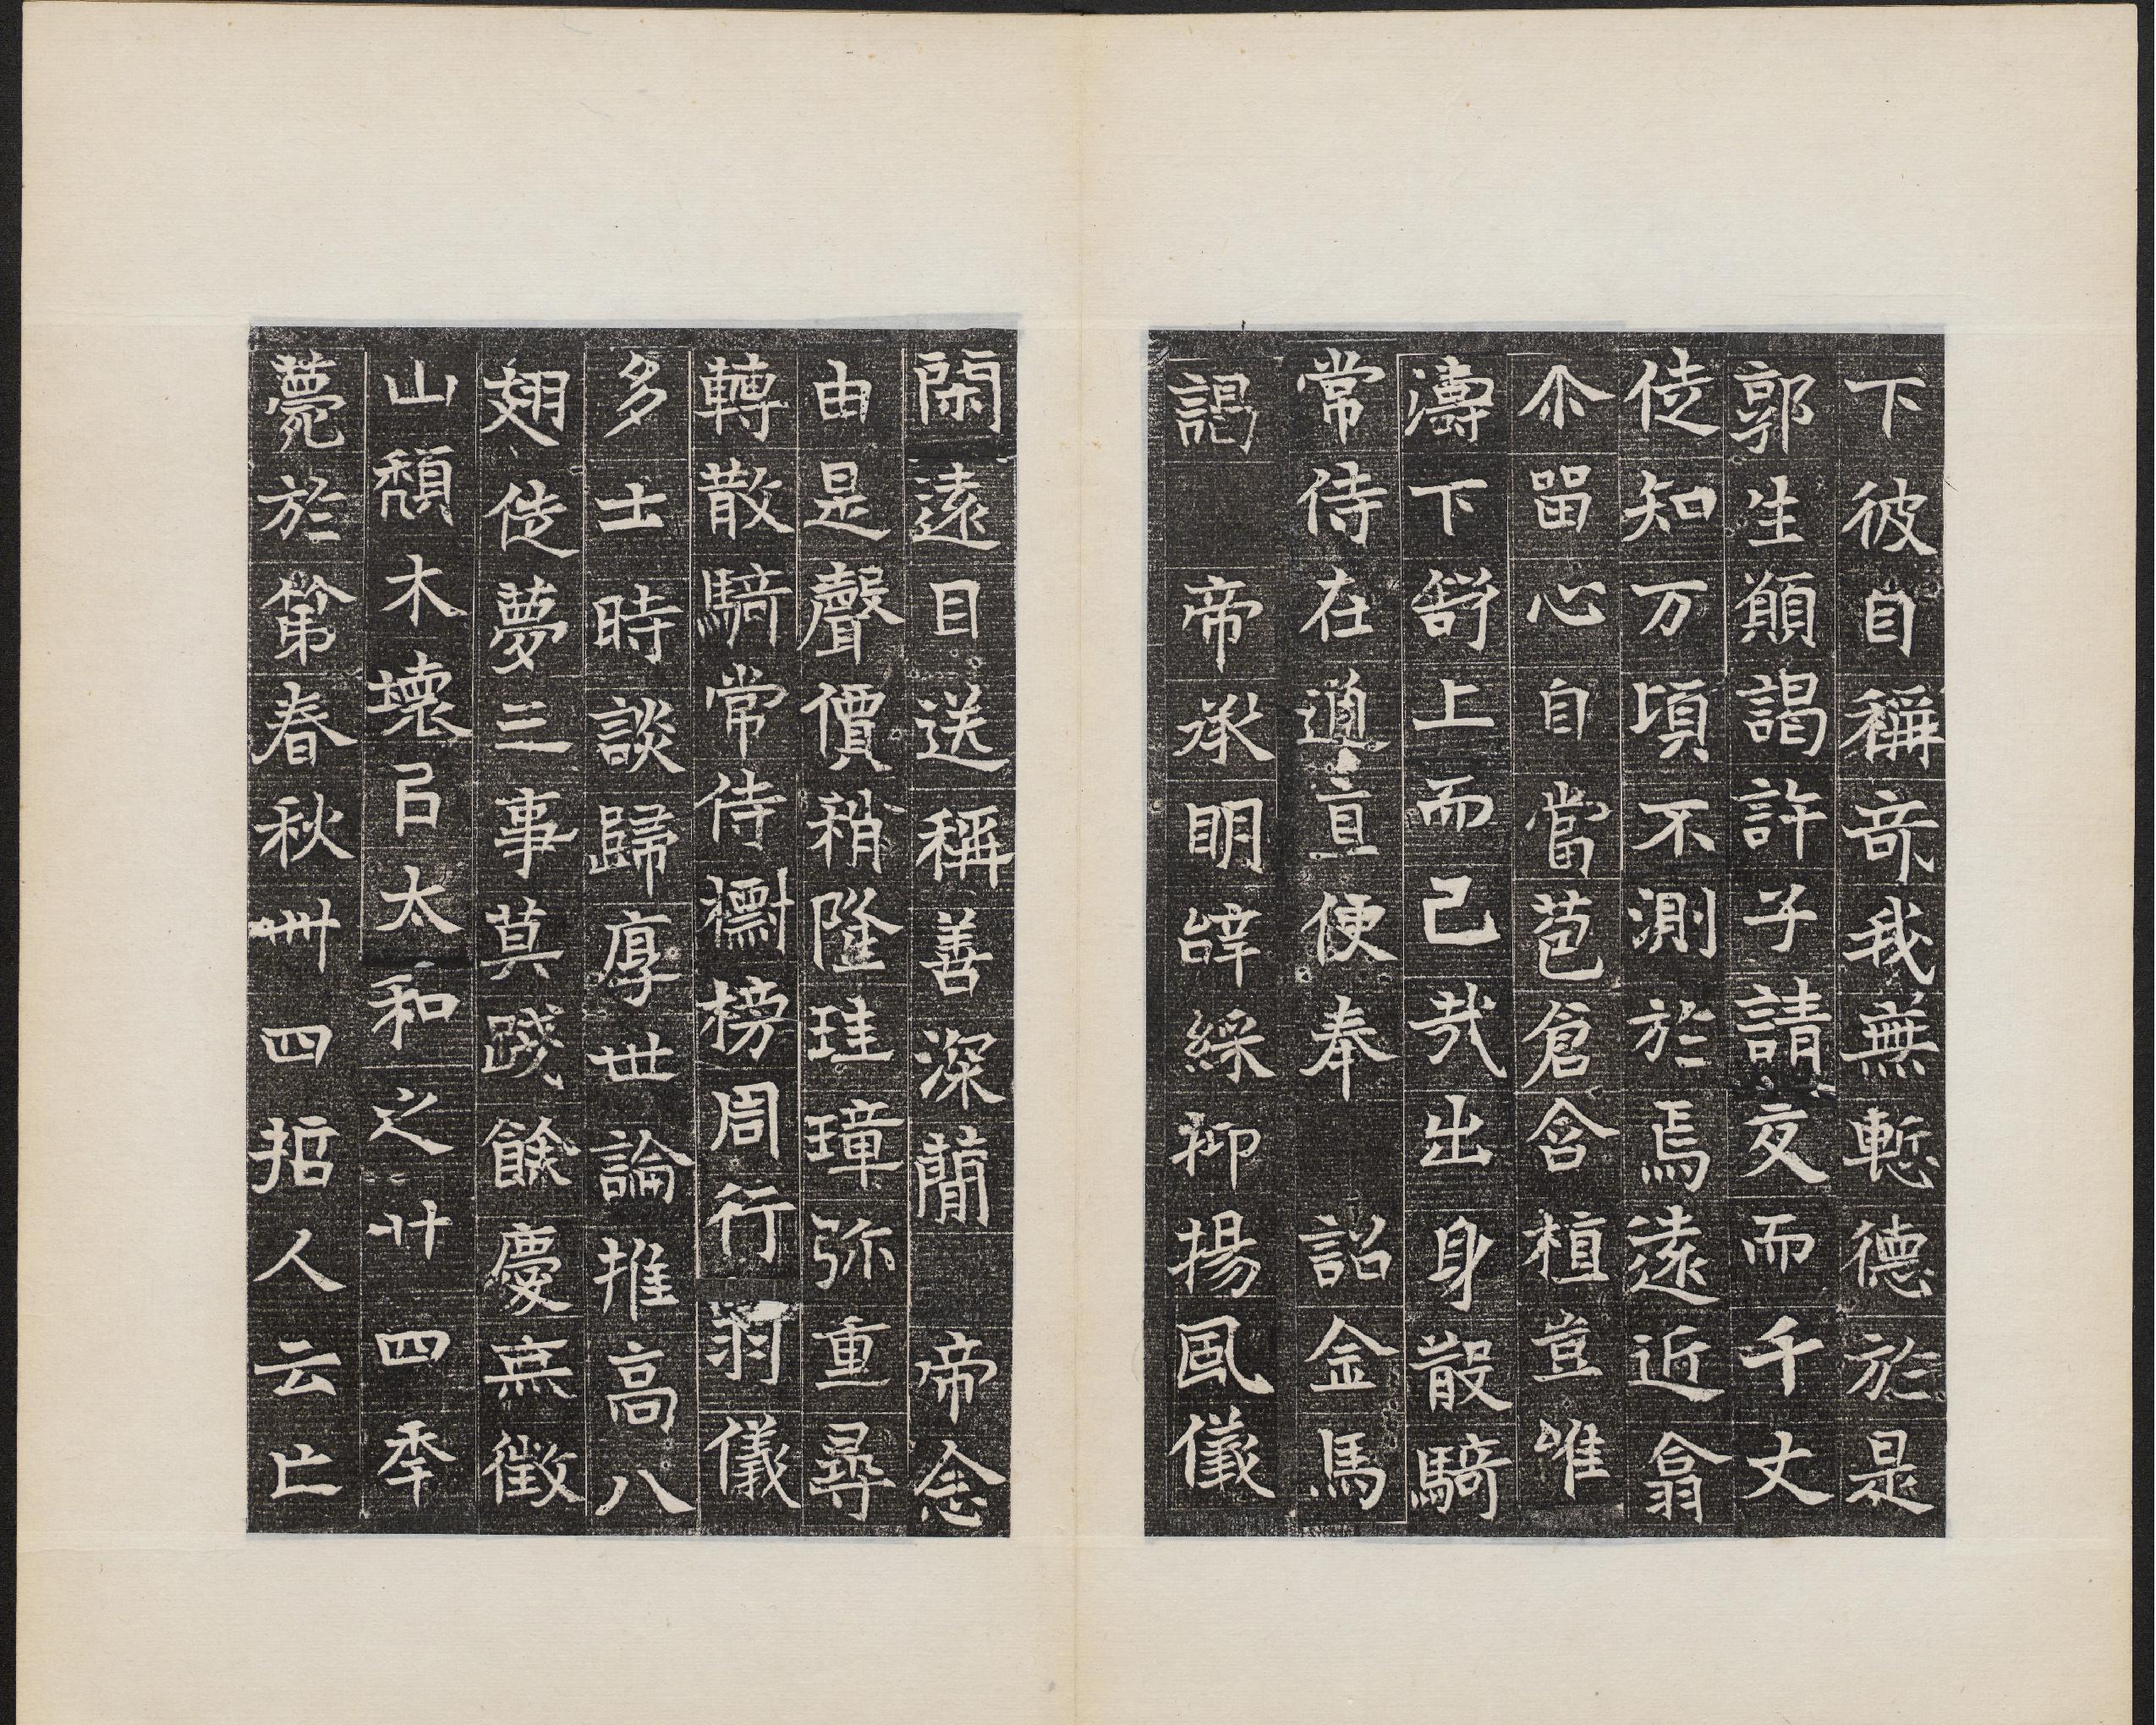 下彼自稱竒我無慙德於是
郭生願謁許子請友而千丈
徒知万頃不測於焉遠近翕
尒留心自當苞倉含植豈唯
濤下嵇上而已哉出身散騎
常侍在道宣便奉　詔金馬
謁　帝承明辝綵抑揚風儀
閑遠目送稱善深蕑　帝念
由是聲價稍隆珪璋弥重尋
轉散騎常侍襽榜周行羽儀
多士時談歸厚世論推高八
翅徙夢三事莫踐餘慶無徵
山頹木壞㠯太和之廿四季
薨於第春秋卌四招人云亡